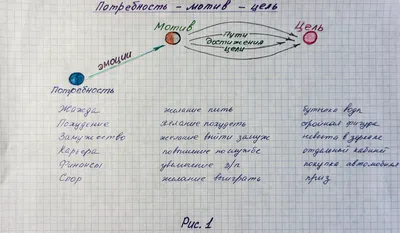 Потребность – мотив – цель
Мотив
Цель
Пути
достижения
цели
эмоции
Потребность
Жажда желание пить бутылка воды
Похудение желание похудеть стройная фигура
Замужество желание выйти замуж невеста в зеркале
Карьера повышение по службе отдельный кабинет
Финансы увеличение з/п покупка автомобиля
Спор желание выиграть приз
Рис. 1